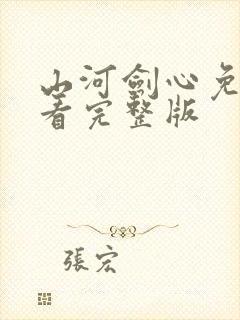 山河劍心免
着完整版
張宏